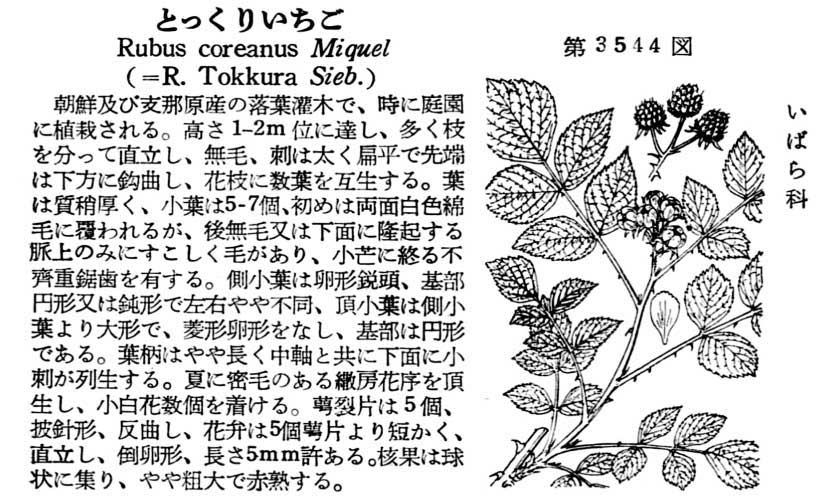 とっくりいちご
Rubus coreanus Miquel
(=R. Tokkura Sieb.)
朝鮮及び支那原産の落葉灌木で、時に庭園
に植栽される。高さ1-2m位に達し、多く枝
を分って直立し、無毛、刺は太く扁平で先端
は下方に鈎曲し、花枝に数葉を互生する。葉
は質稍厚く、小葉は5-7個、初めは両面白色綿
毛に覆われるが、後無毛又は下面に隆起する
脈上のみにすこしく毛があり、小芒に終る不
齊重鋸歯を有する。側小葉は卵形鋭頭、基部
円形又は鈍形で左右やや不同、頂小葉は側小
葉より大形で、菱形卵形をなし、基部は円形
である。葉柄はやや長く中軸と共に下面に小
刺が列生する。夏に密毛のある繖房花序を頂
生し、小白花数個を着ける。萼裂片は5個、
披針形、反曲し、花弁は5個萼片より短かく、
直立し、倒卵形、長さ5mm許ある。核果は球
状に集り、やや粗大で赤熟する。
第3544図
いばら科